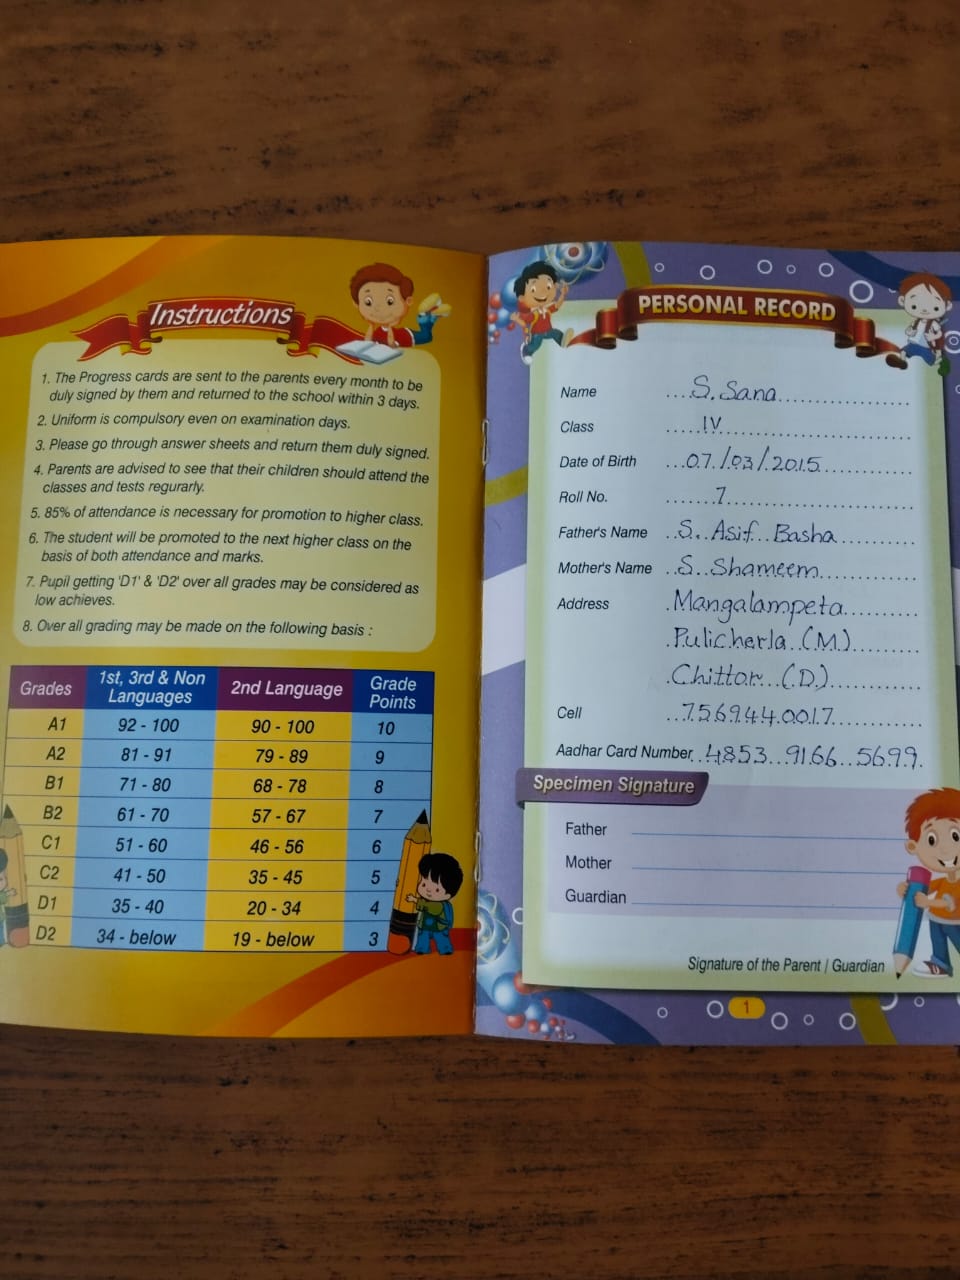 Instructions
1. The Progress cards are sent to the parents every month to be
duly signed by them and returned to the school within 3 days.
2. Uniform is compulsory even on examination days.
3. Please go through answer sheets and return them duly signed.
4. Parents are advised to see that their children should attend the
classes and tests regurarly.
5. 85% of attendance is necessary for promotion to higher class.
6. The student will be promoted to the next higher class on the
basis of both attendance and marks.
7. Pupil getting 'D1' & 'D2' over all grades may be considered as
low achieves.
8. Over all grading may be made on the following basis :
Grades 1st, 3rd & Non Languages 2nd Language Grade Points
A1 92 - 100 90 - 100 10
A2 81 - 91 79 - 89 9
B1 71 - 80 68 - 78 8
B2 61 - 70 57 - 67 7
C1 51 - 60 46 - 56 6
C2 41 - 50 35 - 45 5
D1 35 - 40 20 - 34 4
D2 34 - below 19 - below 3
PERSONAL RECORD
Name S. Sana
Class IV
Date of Birth 07/03/2015
Roll No. 7
Father's Name S. Asif Basha
Mother's Name S. Shameem
Address Mangalampeta
Pulicherla (M)
Chittor (D)
Cell 7569440017
Aadhar Card Number 4853 9166 5699
Specimen Signature
Father
Mother
Guardian
Signature of the Parent / Guardian
1